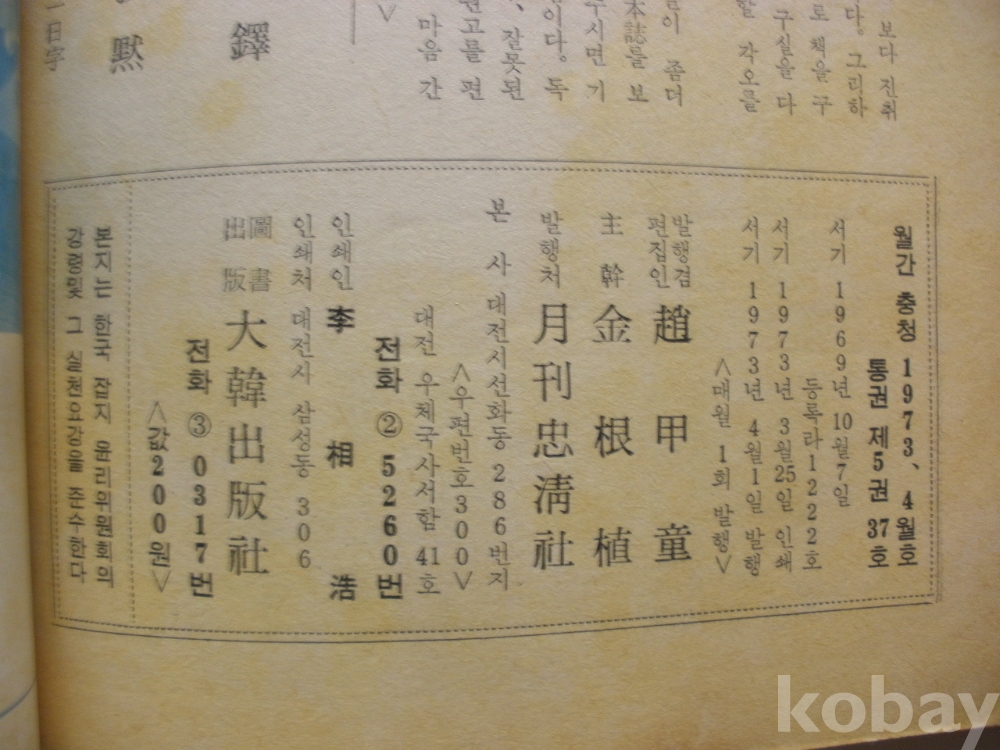 보다 진취
다. 그리하
로 책을 구
구실을 다
할 각오를
들이 좀더
本誌를 보
주시면 기
이다. 독
잘못된
원고를 편
마음 간
鐸
默
日字
월간 충청 1973、4월호
통권 제5권 37호
서기 1969년 10월7일
등록라1222호
서기 1973년 3월25일 인쇄
서기 1973년 4월1일 발행
<매월 1회 발행>
발행겸
편집인 趙甲童
主幹 金根植
발행처 月刊忠淸社
본사 대전시선화동 286번지
<우편번호300>
대전 우체국사서함 41호
전화 ② 5260번
인쇄인 李相浩
인쇄처 대전시 삼성동 306
圖書
出版 大韓出版社
전화 ③ 0317번
<값200원>
본지는 한국 잡지 윤리위원회의
강령및 그 실천요강을 준수한다
kobay